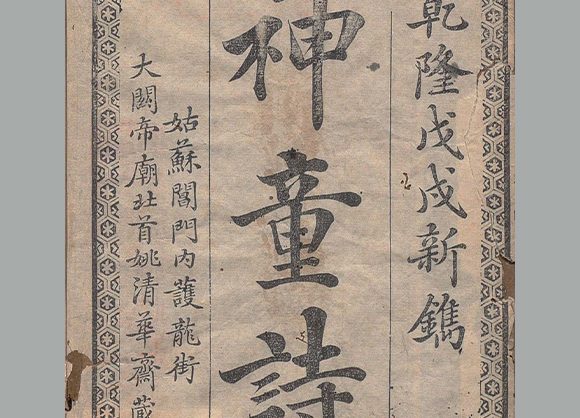 乾隆戊戌新鐫
神童詩
姑蘇閶門內護龍街
大關帝廟北首姚清華齋藏